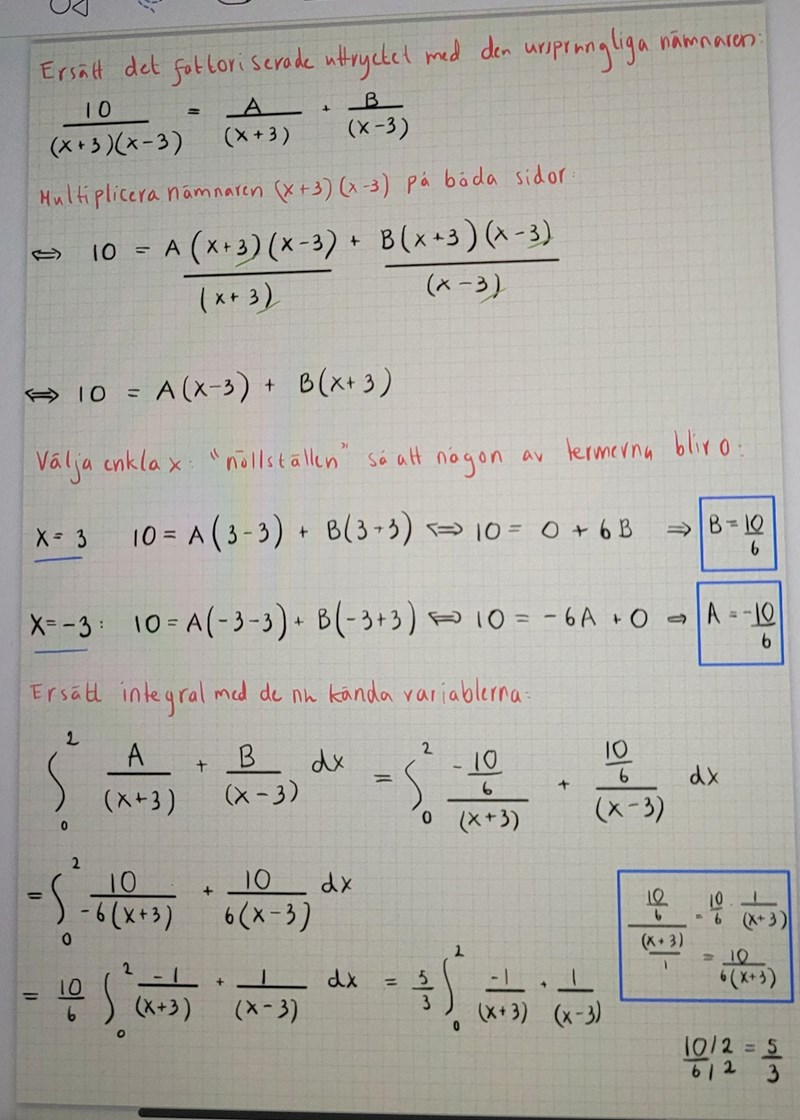 Ersätt det faktoriserade uttrycket med den ursprungliga nämnaren:
10/((x+3)(x-3)) = A/(x+3) + B/(x-3)
Multiplicera nämnaren (x+3)(x-3) på båda sidor:
⇔ 10 = A(x+3)(x-3)/(x+3) + B(x+3)(x-3)/(x-3)
⇔ 10 = A(x-3) + B(x+3)
Välja enkla x: "nollställen" så att någon av termerna blir 0:
x = 3 10 = A(3-3) + B(3+3) ⇔ 10 = 0 + 6B ⇒ B = 10/6
x = -3: 10 = A(-3-3) + B(-3+3) ⇔ 10 = -6A + 0 ⇒ A = -10/6
Ersätt integral med de nu kända variablerna:
∫₀² A/(x+3) + B/(x-3) dx = ∫₀² (-10/6)/(x+3) + (10/6)/(x-3) dx
= ∫₀² 10/(-6(x+3)) + 10/(6(x-3)) dx
(10/6)/((x+3)/1) = 10/6 · 1/(x+3)
= 10/(6(x+3))
= 10/6 ∫₀² -1/(x+3) + 1/(x-3) dx = 5/3 ∫₀² -1/(x+3) + 1/(x-3)
10/2 / 6/2 = 5/3